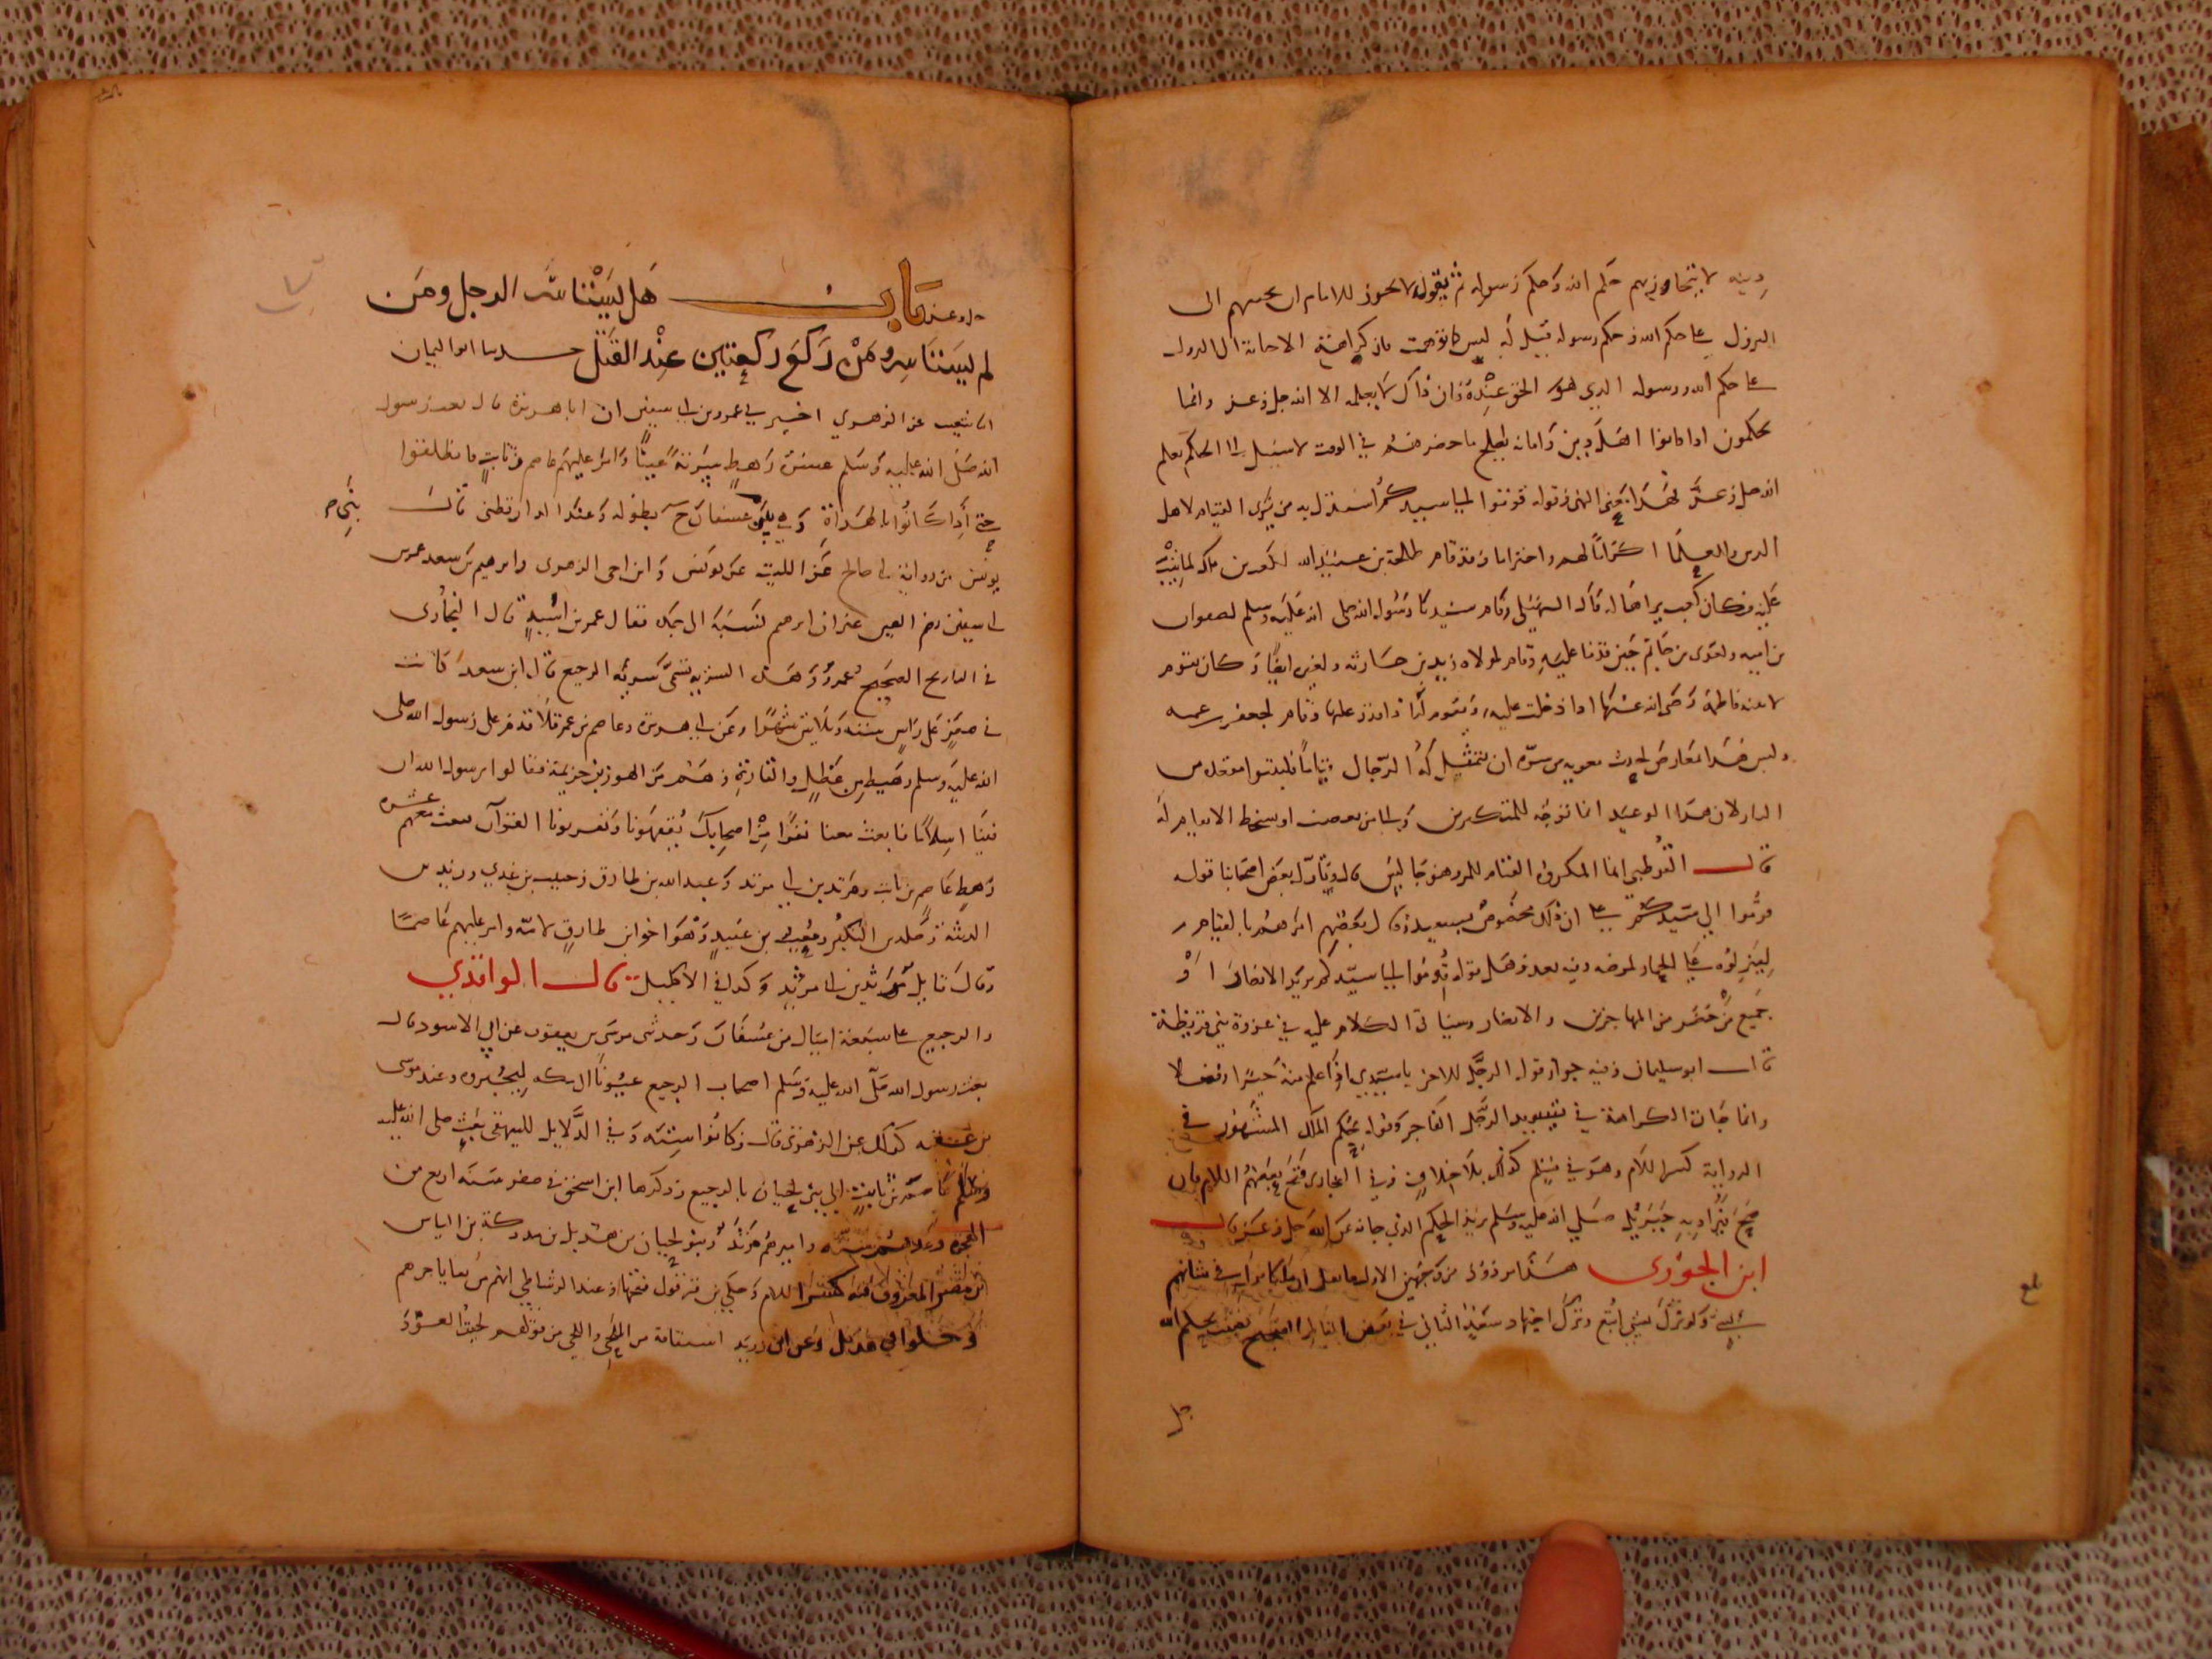 دينه لا يتجاوز بهم حكم الله وحكم رسوله ثم يقول لا يجوز للامام ان يجيبهم الى
النزول على حكم الله وحكم رسوله قيل له ليس كما توهمت فان كراهية الاجابة الى النزول
على حكم الله ورسوله الذي هو الحق عنده وان ذلك لا يعلمه الا الله جل وعز وانما
يحكمون اذا كانوا اهل دين وامانة بصلح ما حضر منه في الوقت لا سبيل الى الحكم بعلم
الله جل وعز لهذا يعني النهى وقوله قوموا الى سيدكم استدل به من يرى القيام لاهل
الدين والعلما اكراما لهم واحتراما وقد قام طلحة بن عبيد الله لكعب بن مالك لما تيب
عليه فكان كعب يراها له قال السهيلي وقام سيدنا رسول الله صلى الله عليه وسلم لصفوان
بن امية ولعدى بن حاتم حين قدما عليه وقام لمولاه زيد بن حارثة ولغيره ايضا وكان يقوم
لابنته فاطمة رضى الله عنها اذا دخلت عليه وتقوم له اذا ورد عليها وقام لجعفر بن عمه
وليس هذا معارض لحديث معوية من سره ان يتمثل له الرجال قياما فليتبوا مقعده من
النار لان هذا الوعيد انما توجه للمتكبرين والى من يغضب او يسخط الا يقام له
قال القرطبي انما المكروه القيام للمرء وهو جالس قال وتاول بعض اصحابنا قوله
قوموا الى سيدكم على ان ذلك مخصوص بسعيد وقال بعضهم امرهم بالقيام
لينزلوه عن الحمار لمرضه وفيه بعد وهل قوله قوموا الى سيدكم يريد الانصار او
جميع من حضر من المهاجرين والانصار وسياتى الكلام عليه في غزوة بني قريظة
قال ابو سليمان وفيه جواز قول الرجل للاخر يا سيدي اذا علم منه خيرا وفضلا
وانما جات الكراهة في تسويد الرجل الفاجر وقوله بحكم الملك المشهور في
الرواية كسر اللام وهو في مسلم كذلك بلا خلاف وفي البخارى فتح بعضهم اللام فان
صح يراد به جبرئيل صلي الله عليه وسلم يريد الحكم الذي جاء به عن الله جل وعز قال
ابن الجوزى هذا مردود من وجهين الاول ما نقل ان ملكا نزل في شانهم
بشي ولو نزل بشي اتبع وترك اجتهاد سعد الثاني في بعض الفاظ الصحيح قضيت بحكم الله
جل
بلغ
جل وعز باب هل يستاسر الرجل ومن
لم يستاسر ومن ركع ركعتين عند القتل حدثنا ابو اليمان
انا شعيب عن الزهري اخبرني عمرو بن ابي سفين ان ابا هريرة قال بعث رسول
الله صلى الله عليه وسلم عشرة رهط سرية عينا وامر عليهم عاصم بن ثابت فانطلقوا
حتى اذا كانوا بالهداة وهي بين عسفان ح بطوله وعند الدارقطنى قال
بنى ص
يونس من رواية ابي صالح عن الليث عن يونس وابن اخى الزهرى وابرهيم بن سعد عمر بن
ابي سفين بضم العين غير ان ابرهيم نسبه الى جده فقال عمر بن اسيد قال البخارى
في التاريخ الصحيح عمرو وهذه السرية تسمى سرية الرجيع قال ابن سعد كانت
في صفر على راس ستة وثلاثين شهرا وعن ابي هريرة وعاصم بن عمر قالا قدم على رسول الله صلى
الله عليه وسلم رهط من عضل والقارة وهم من الهون بن خزيمة فقالوا يرسول الله ان
فينا اسلاما فابعث معنا نفرا من اصحابك يفقهونا ويقرونا القران فبعث معهم عشره
رهط عاصم بن ثابت ومرثد بن ابي مرثد وعبد الله بن طارق وخبيب بن عدي وزيد بن
الدثنة وخلد بن البكير ومعتب بن عبيد وهو اخو ابن طارق لامه وامر عليهم عاصما
وقال قايل مرثد بن ابي مرثد وكذا في الاكليل قال الواقدي
والرجيع على سبعة اميال من عسفان وحدثنى موسى بن يعقوب عن ابي الاسود قال
بعث رسول الله صلى الله عليه وسلم اصحاب الرجيع عيونا الى مكه ليخبروه وعند موسى
بن عقبه كذلك عن الزهرى قال وكانوا ستة وفي الدلايل للبيهقى بعث صلى الله عليه
وسلم عاصم بن ثابت الى بني لحيان بالرجيع وذكرها ابن اسحق في صفر سنة اربع من
الهجره وعدتهم سته واميرهم مرثد وبنو لحيان بن هذيل بن مدركة بن الياس
بن مضر المعروف فيه كسر اللام وحكى بن قرقول فتحها وعند الرشاطي انهم من بقايا جرهم
دخلوا في هذيل وعن ابن دريد اشتقاقه من اللحى واللحى من قولهم لحيت العود